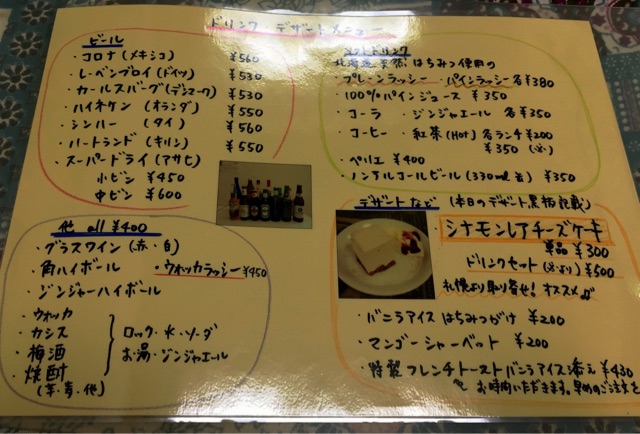 ドリンク、デザートメニュー
ビール
・コロナ(メキシコ) ¥560
・レーベンブロイ(ドイツ) ¥530
・カールスバーグ(デンマーク) ¥530
・ハイネケン(オランダ) ¥550
・シンハー(タイ) ¥560
・ハートランド(キリン) ¥550
・スーパードライ(アサヒ)
小ビン ¥450
中ビン ¥600
他 all ¥400
・グラスワイン(赤・白)
・角ハイボール ・ウォッカラッシー ¥450
・ジンジャーハイボール
・ウォッカ
・カシス
・梅酒
・焼酎
(芋・麦・他)
ロック・水・ソーダ
お湯・ジンジャエール
ソフトドリンク
北海道 はちみつ使用の
・プレーンラッシー ・パインラッシー 各¥380
・100%パインジュース ¥350
・コーラ ・ジンジャエール 各¥350
・コーヒー ・紅茶(Hot) 各ランチ¥200
¥350
・ペリエ ¥400
・ノンアルコールビール(330ml 缶) ¥350
デザートなど (本日のデザート黒板記載)
シナモンレアチーズケーキ
単品 ¥300
ドリンクセット ¥500
札幌より取り寄せ!オススメ♪
・バニラアイス はちみつがけ ¥200
・マンゴーシャーベット ¥200
・特製フレンチトースト バニラアイス添え ¥430
お時間いただきます。早めのご注文を